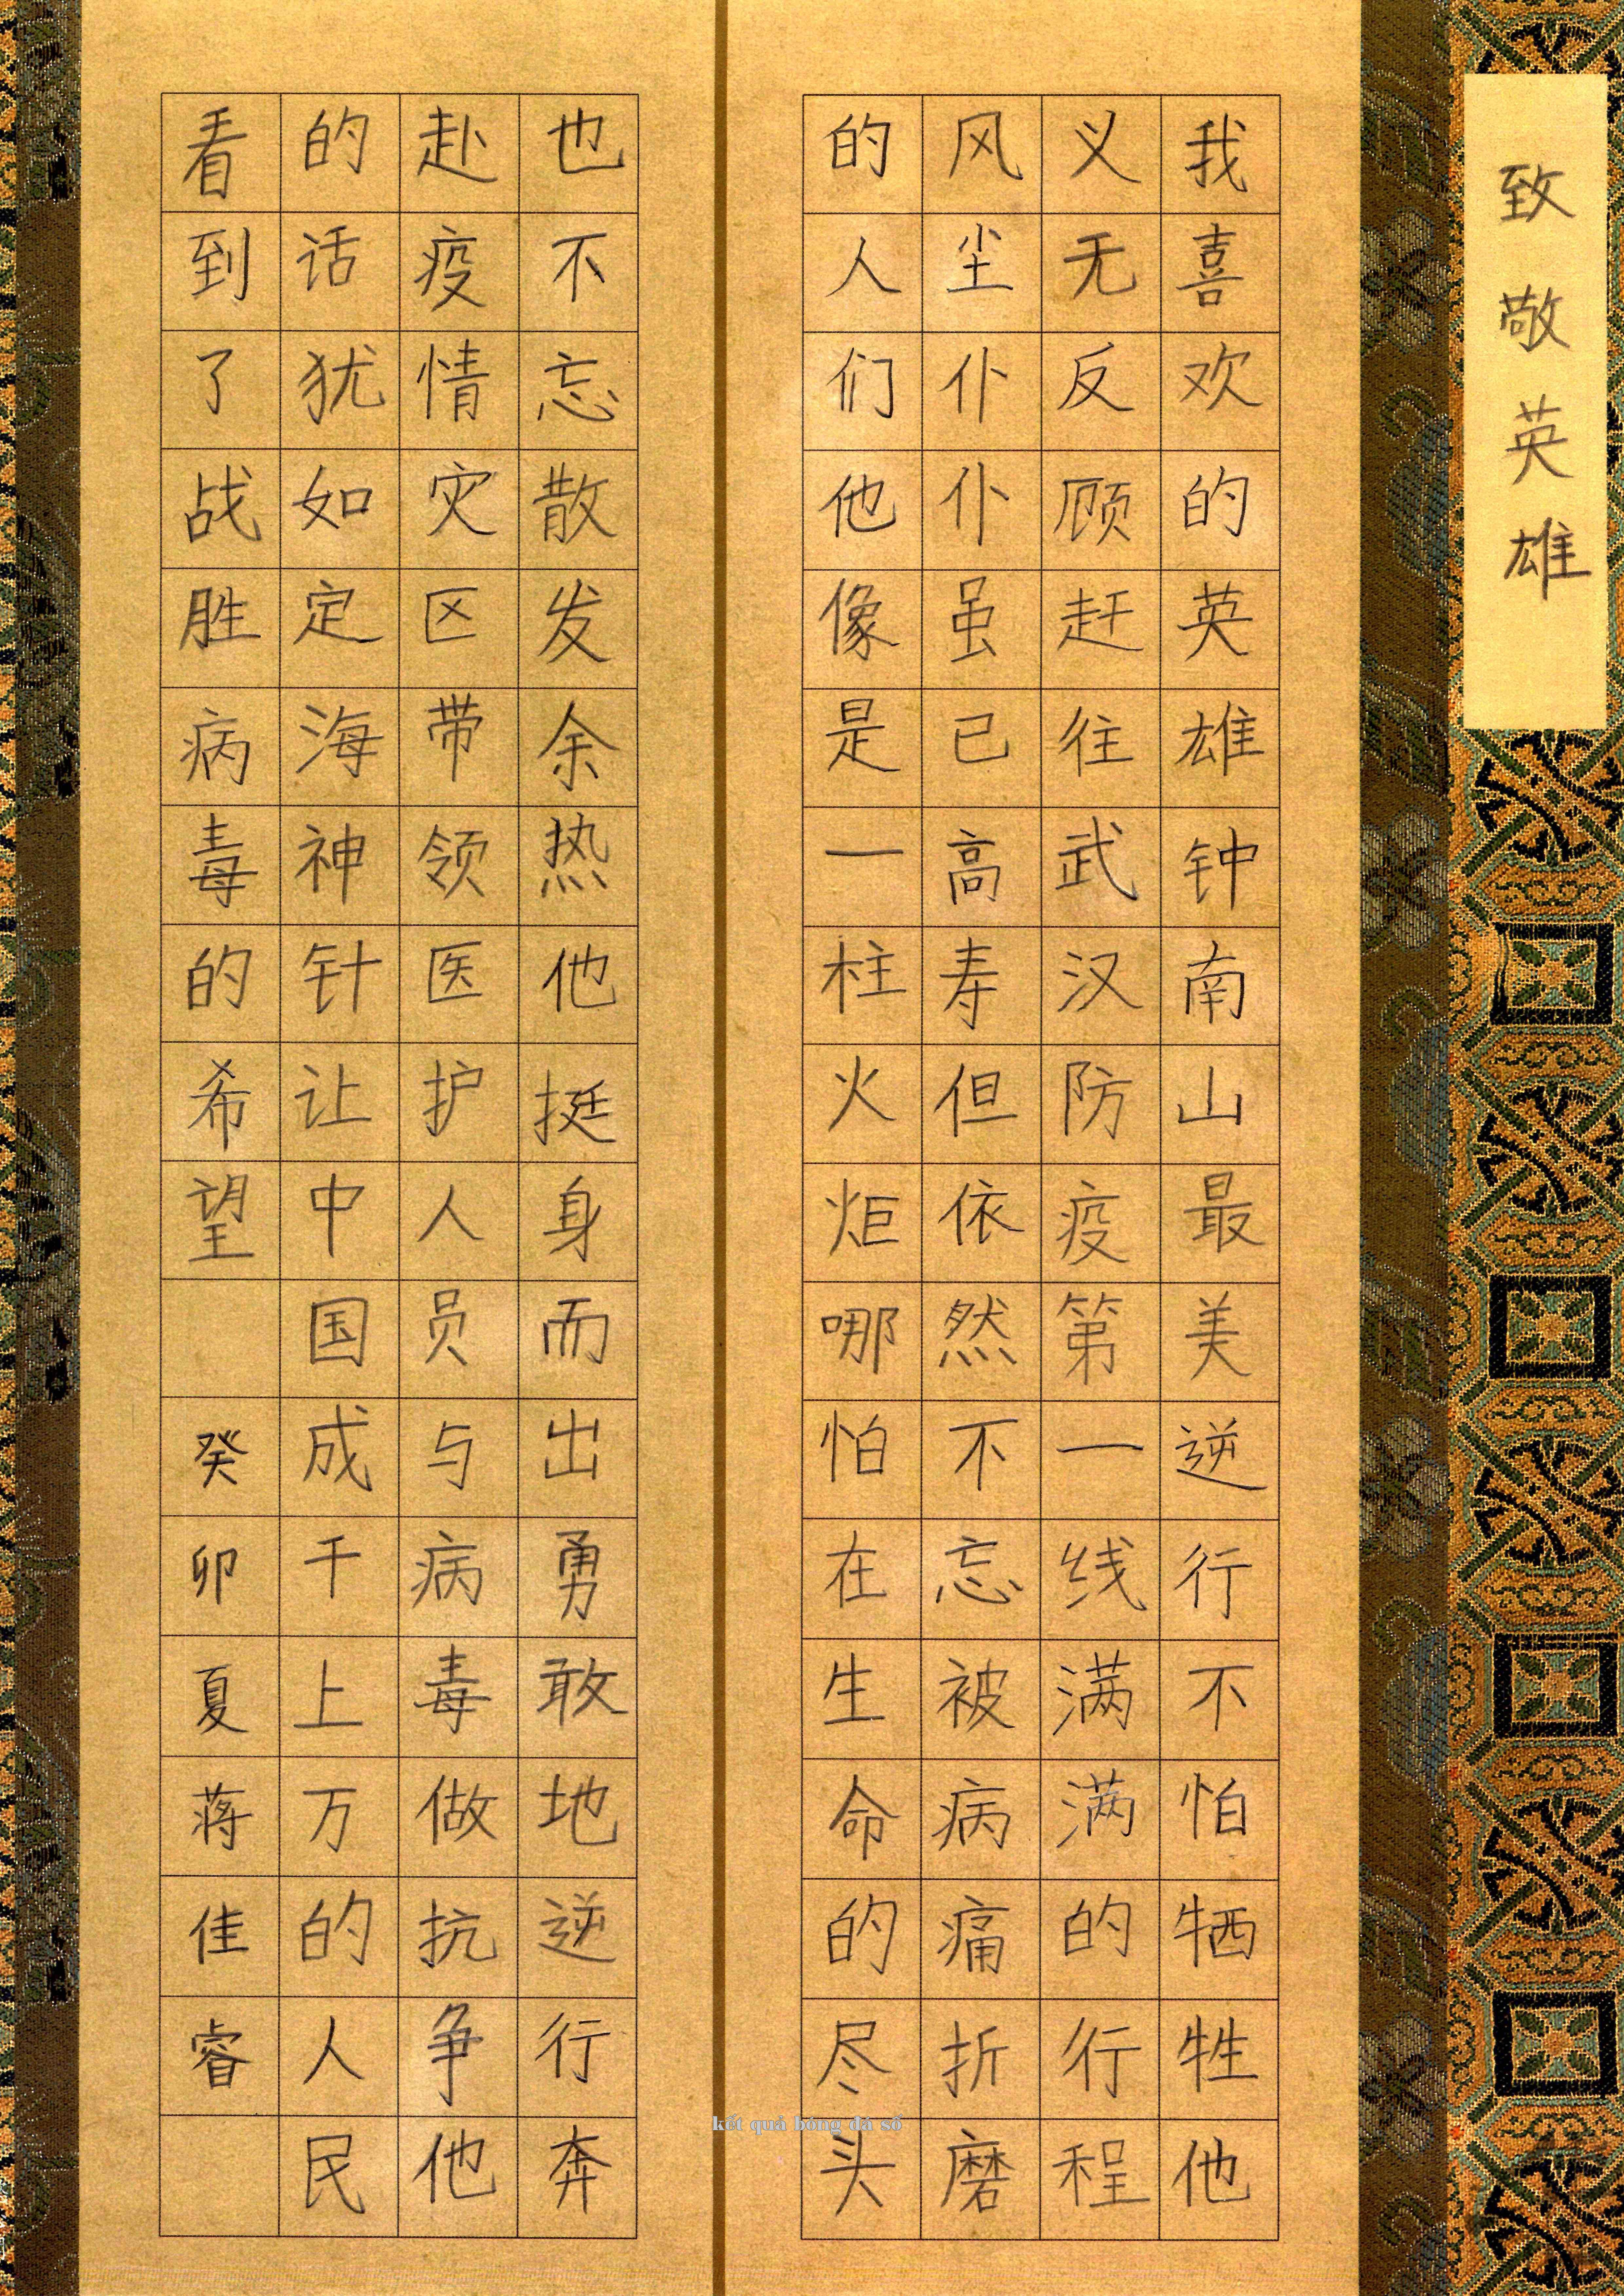 致敬英雄
我喜欢的英雄钟南山最美逆行不怕牺牲他
义无反顾赶往武汉防疫第一线满满的行程
风尘仆仆虽已高寿但依然不忘被病痛折磨
的人们他像是一柱火炬哪怕在生命的尽头
也不忘散发余热他挺身而出勇敢地逆行奔
赴疫情灾区带领医护人员与病毒做抗争他
的话犹如定海神针让中国成千上万的人民
看到了战胜病毒的希望 癸卯夏蒋佳睿
kết quả bóng đá số